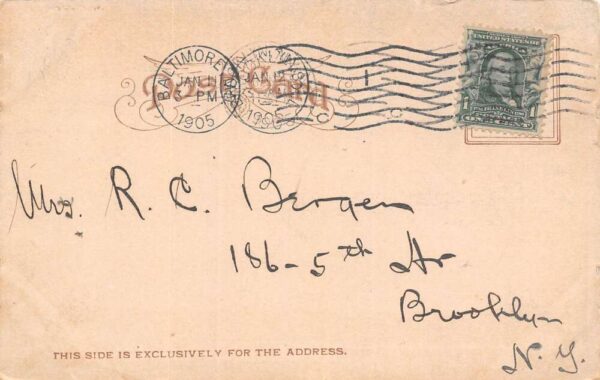 Post Card
BALTIMORE
JAN 11
PM
1905
JAN 12
1905
1
UNITED STATES OF
ONE CENT
Mrs. R. C. Bergen
186-5th Av
Brooklyn
N. Y.
THIS SIDE IS EXCLUSIVELY FOR THE ADDRESS.